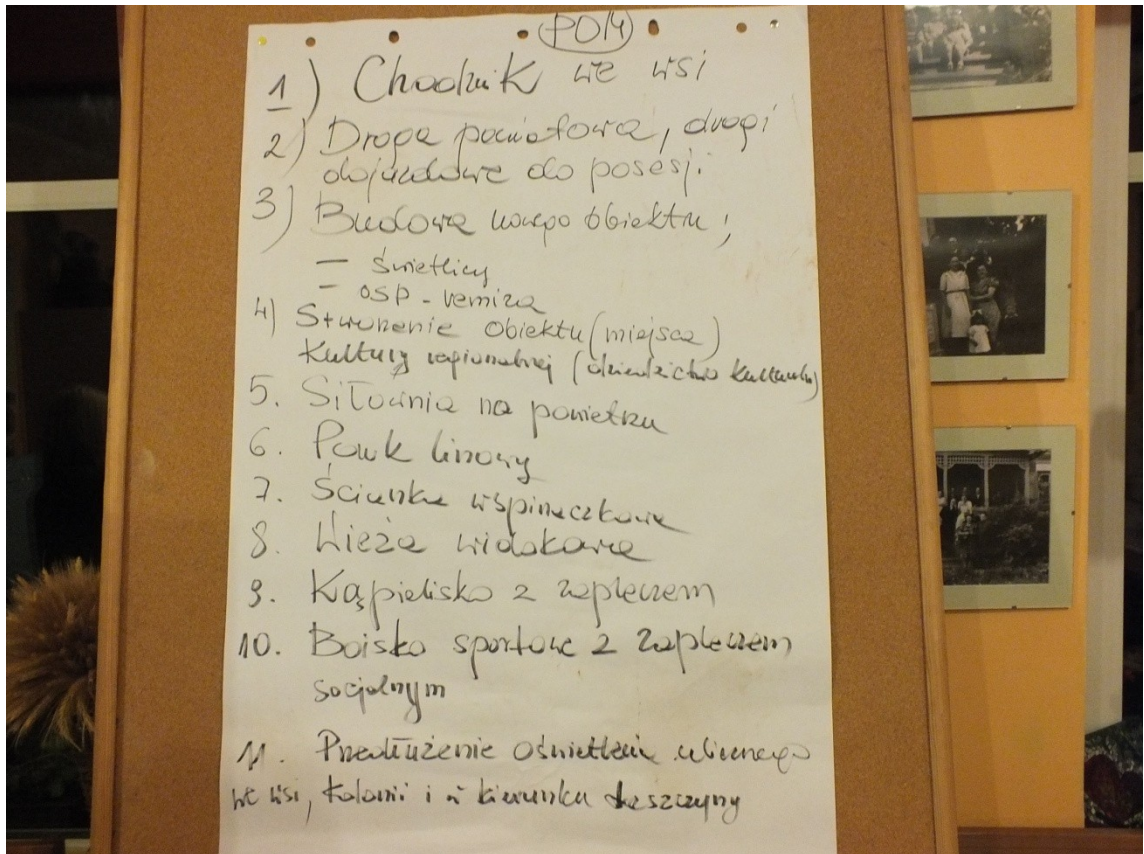 1) Chodnik we wsi
2) Droga powiatowa, drogi
dojazdowe do posesji
3) Budowa nowego obiektu;
- świetlicy
- OSP - remiza
4) Stworzenie obiektu (miejsca)
Kultury regionalnej (dziedzictwo kulturalne)
5. Siłownia na powietrzu
6. Park linowy
7. Ścianka wspinaczkowa
8. Wieża widokowa
9. Kąpielisko z zapleczem
10. Boisko sportowe z zapleczem
socjalnym
11. Przedłużenie oświetlenia ulicznego
we wsi, kolonii i w kierunku